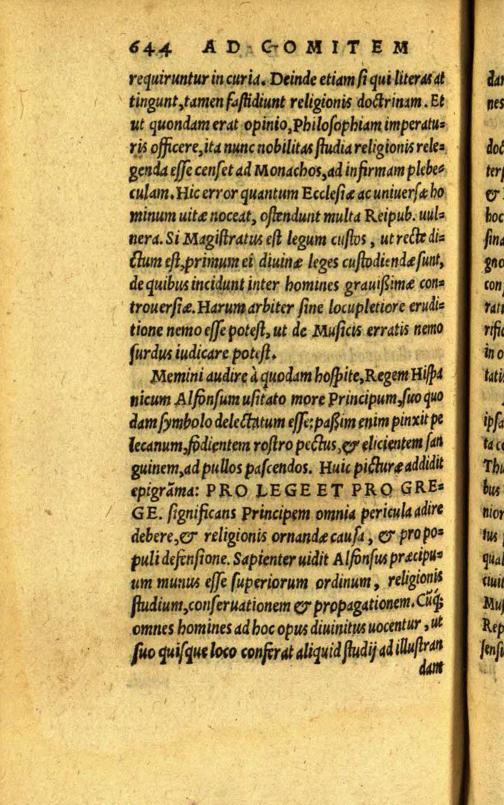 644 AD COMITEM
requiruntur in curia. Deinde etiam si qui literas at
tingunt, tamen fastidiunt religionis doctrinam. Et
ut quondam erat opinio, Philosophiam imperatu=
ris officere, ita nunc nobilitas studia religionis rele=
genda esse censet ad Monachos, ad infirmam plebe=
culam. Hic error quantum Ecclesiæ ac uniuersæ ho
minum uitæ noceat, ostendunt multa Reipub. uul=
nera. Si Magistratus est legum custos, ut recte di=
ctum est, primum ei diuinæ leges custodiendæ sunt,
de quibus incidunt inter homines grauißimæ con=
trouersiæ. Harum arbiter sine locupletiore erudi=
tione nemo esse potest, ut de Musicis erratis nemo
surdus iudicare potest.
Memini audire à quodam hospite, Regem Hispa
nicum Alfonsum usitato more Principum, suo quo
dam symbolo delectatum esse: paßim enim pinxit pe
lecanum, fodientem rostro pectus, & elicientem san
guinem, ad pullos pascendos. Huic picturæ addidit
epigrāma: PRO LEGE ET PRO GRE=
GE. significans Principem omnia pericula adire
debere, & religionis ornandæ causa, & pro po=
puli defensione. Sapienter uidit Alfonsus præcipu=
um munus esse superiorum ordinum, religionis
studium, conseruationem & propagationem. Cūq́;
omnes homines ad hoc opus diuinitus uocentur, ut
suo quisque loco conferat aliquid studij ad illustran
dam